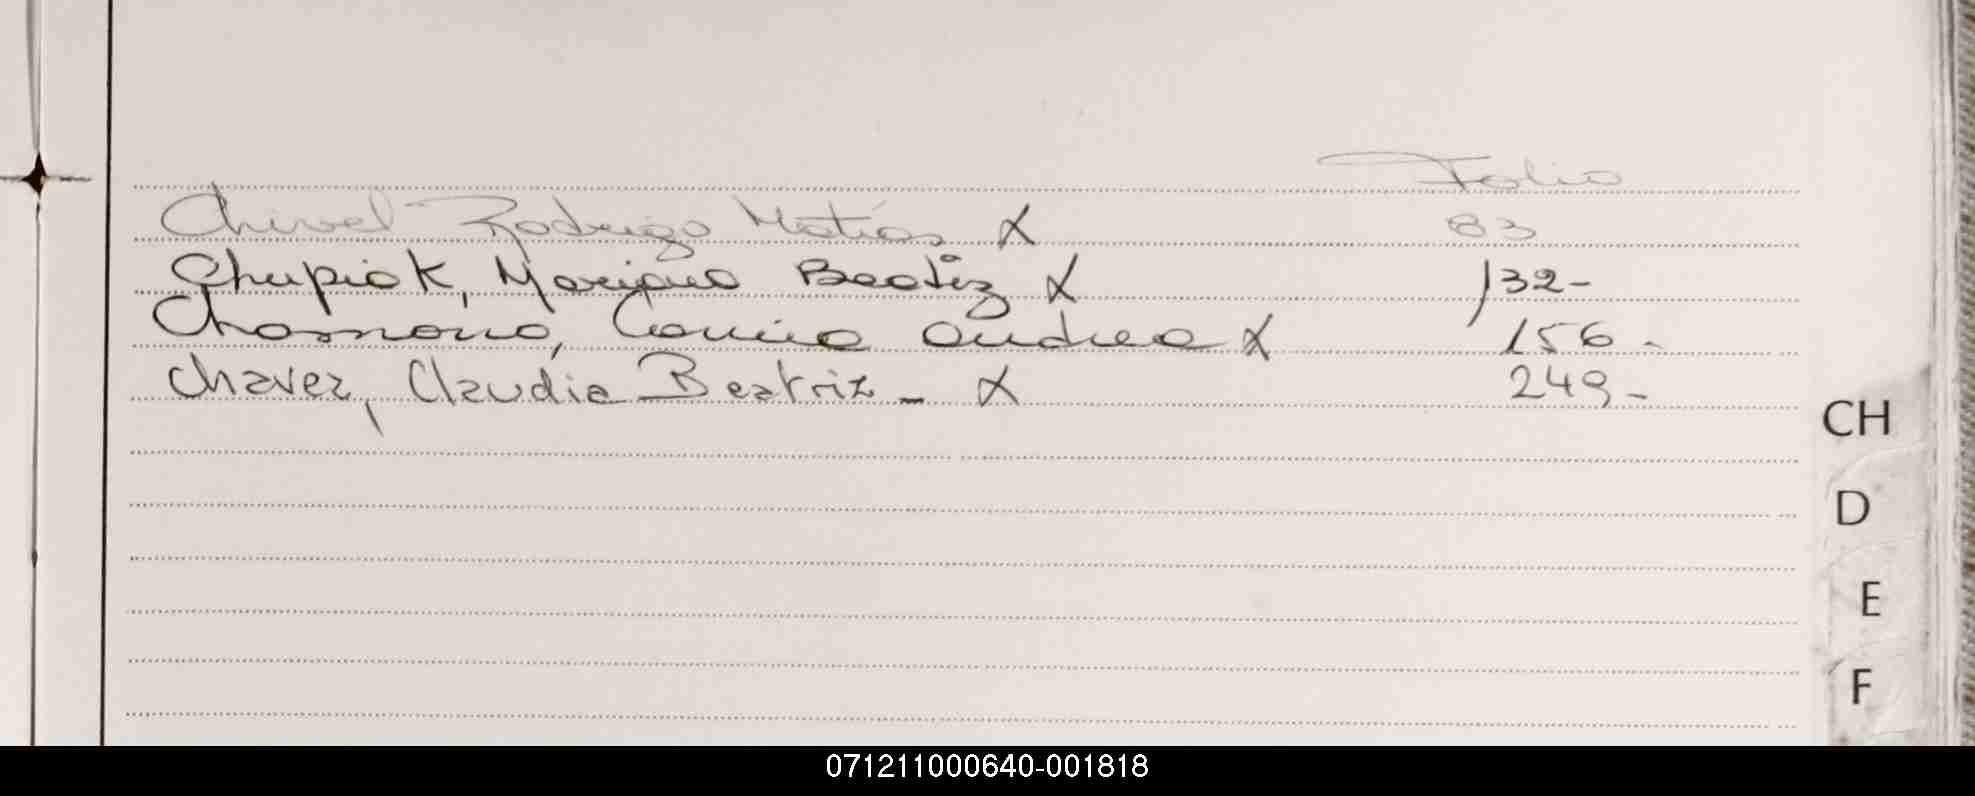 Folio
Chivel Rodrigo Matías X 83
Chupiak, Mariana Beatriz X 132-
Chamorro, Carina Andrea X 156-
Chavez, Claudia Beatriz - X 249-
CH
D
E
F
071211000640-001818